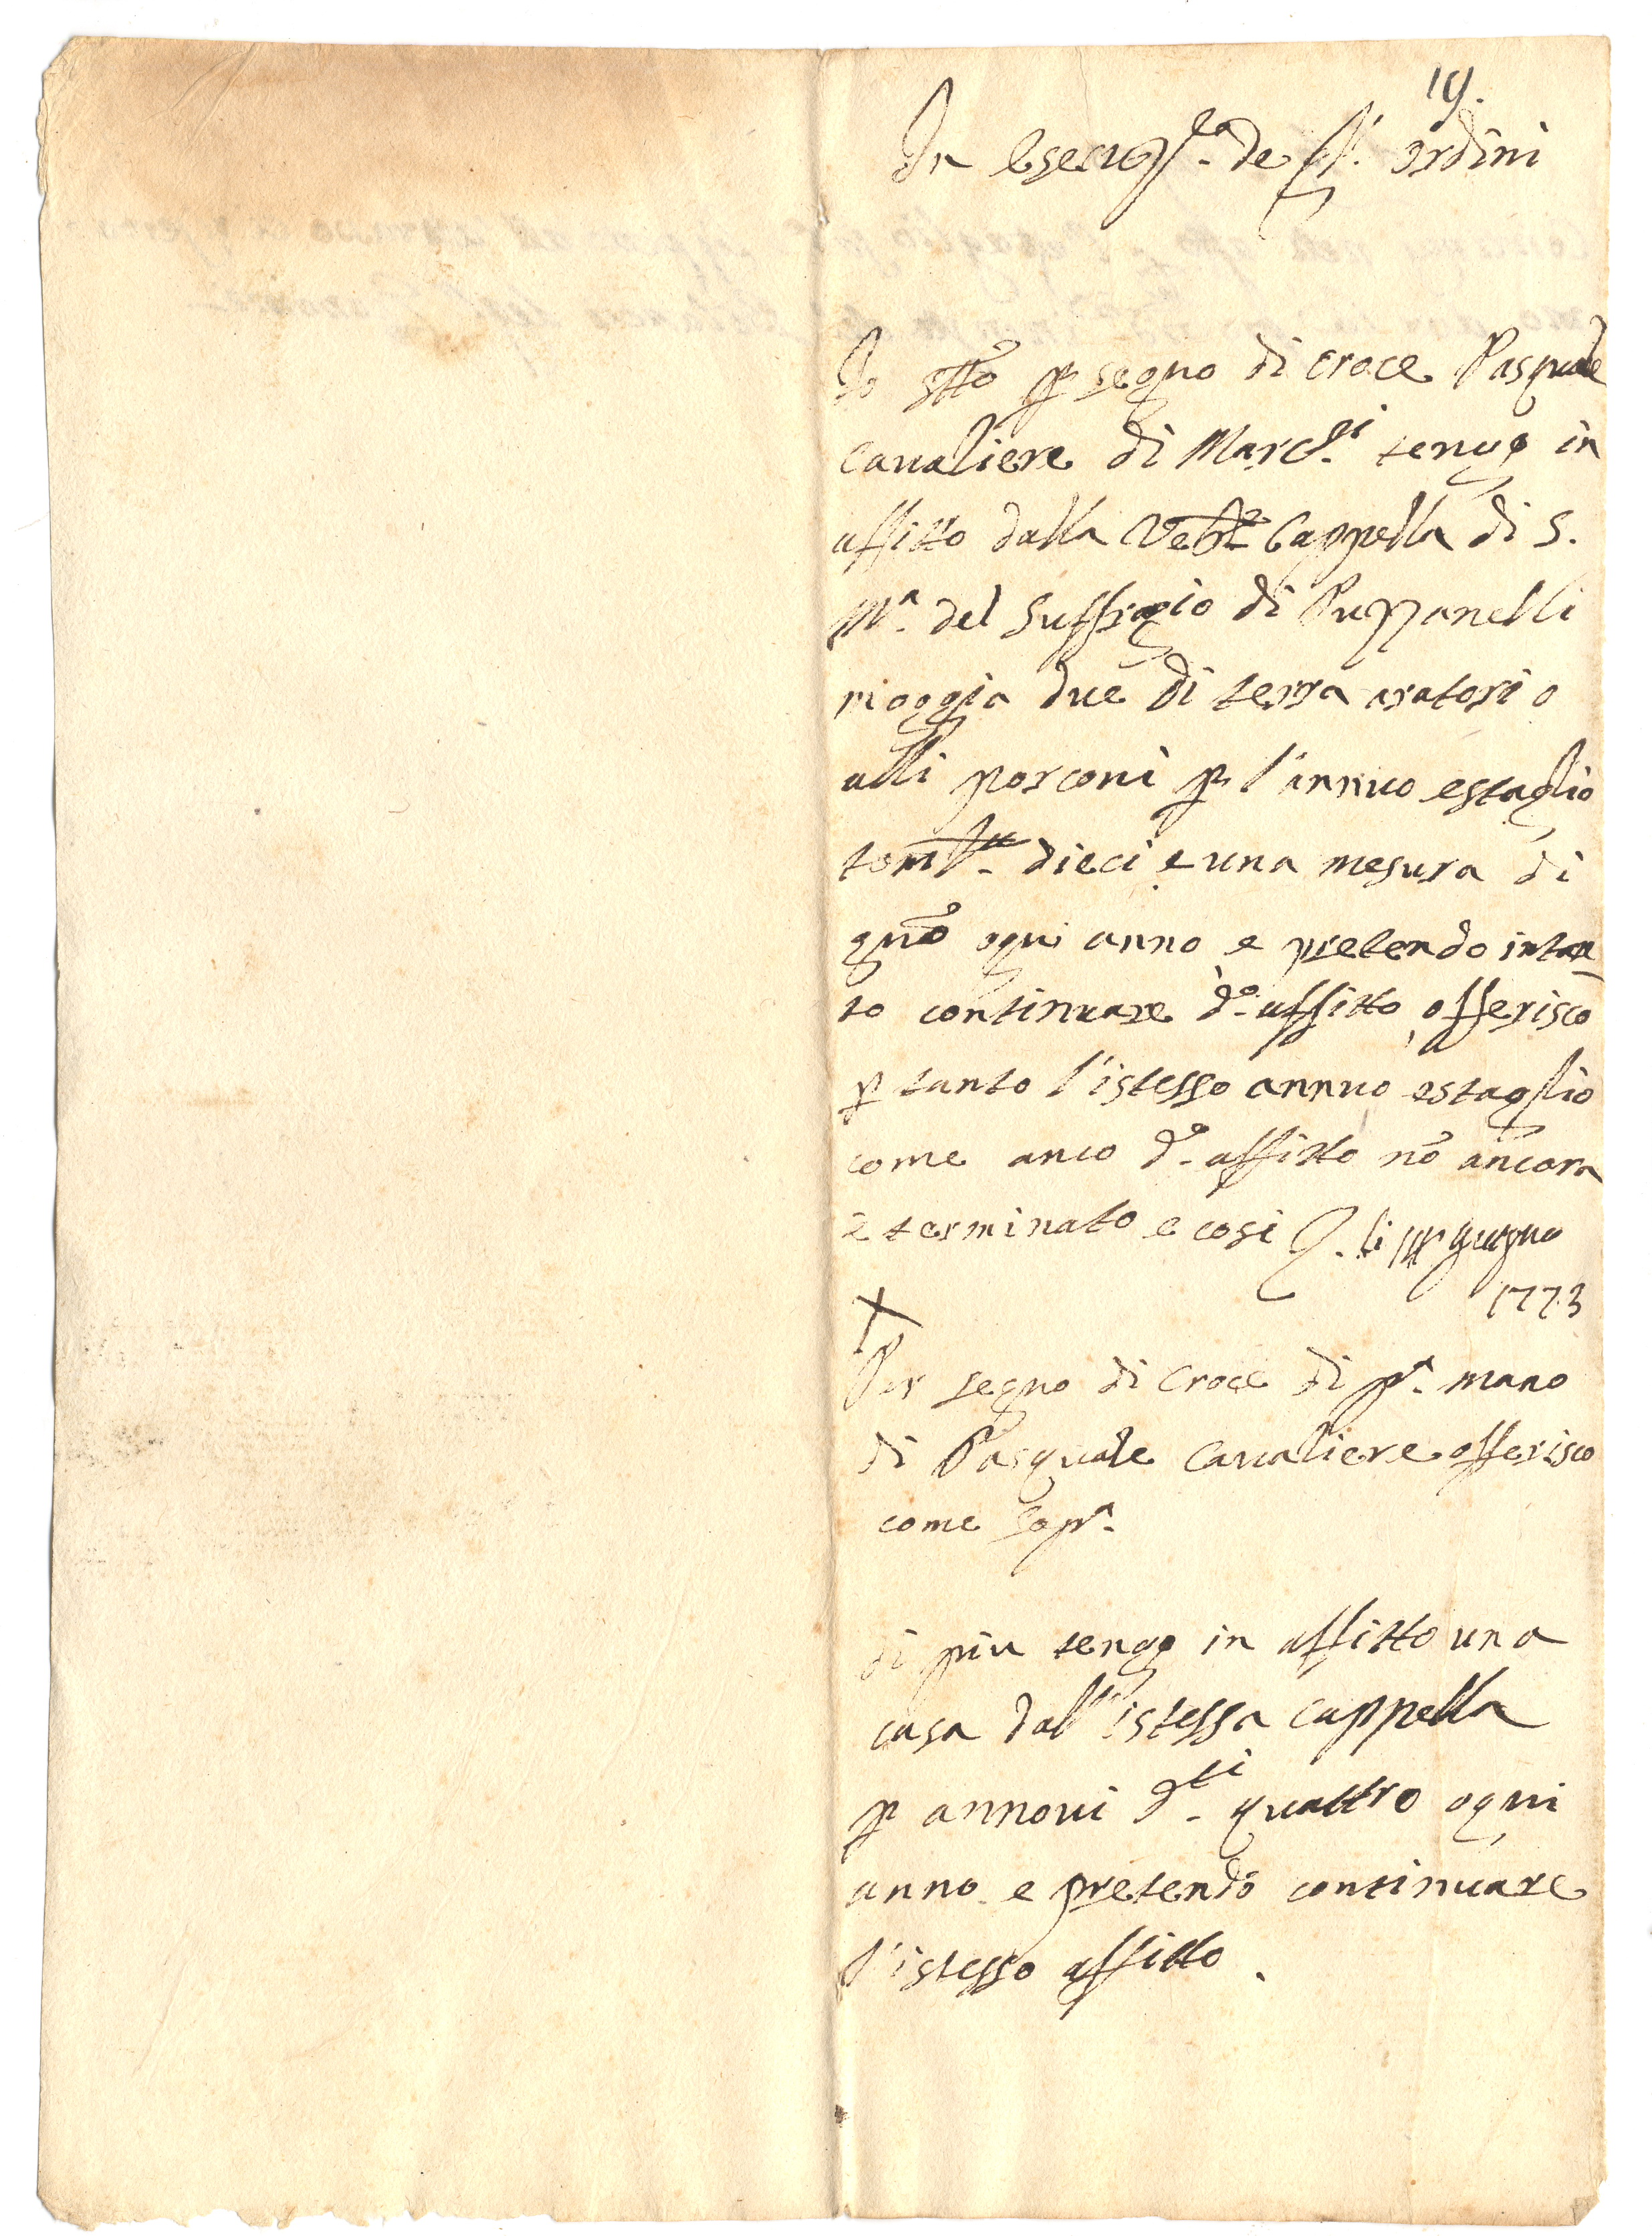 19.
In esecuz.e de gl'. ordini
Io stto p segno di croce Pasquale
Cavaliere di Marc.si tengo in
affitto dalla Veble Cappella di S.
Ma. del Suffragio di Puzzanelli
moggia due di terra aratorio
alli porconi p l'annuo estaglio
tomla. dieci e una mesura di
gno ogni anno e pretendo intan
to continuare do. affitto, offerisco
p tanto l'istesso annuo estaglio
come anco do. affitto no ancora
è terminato e cosi li giugno
1773
+
Per segno di Croce di pa. mano
di Pasquale Cavaliere offerisco
come sopra.
di piu tengo in affitto una
casa dall'istessa cappella
p annovi dti. quattro ogni
anno e pretendo continuare
l'istesso affitto.